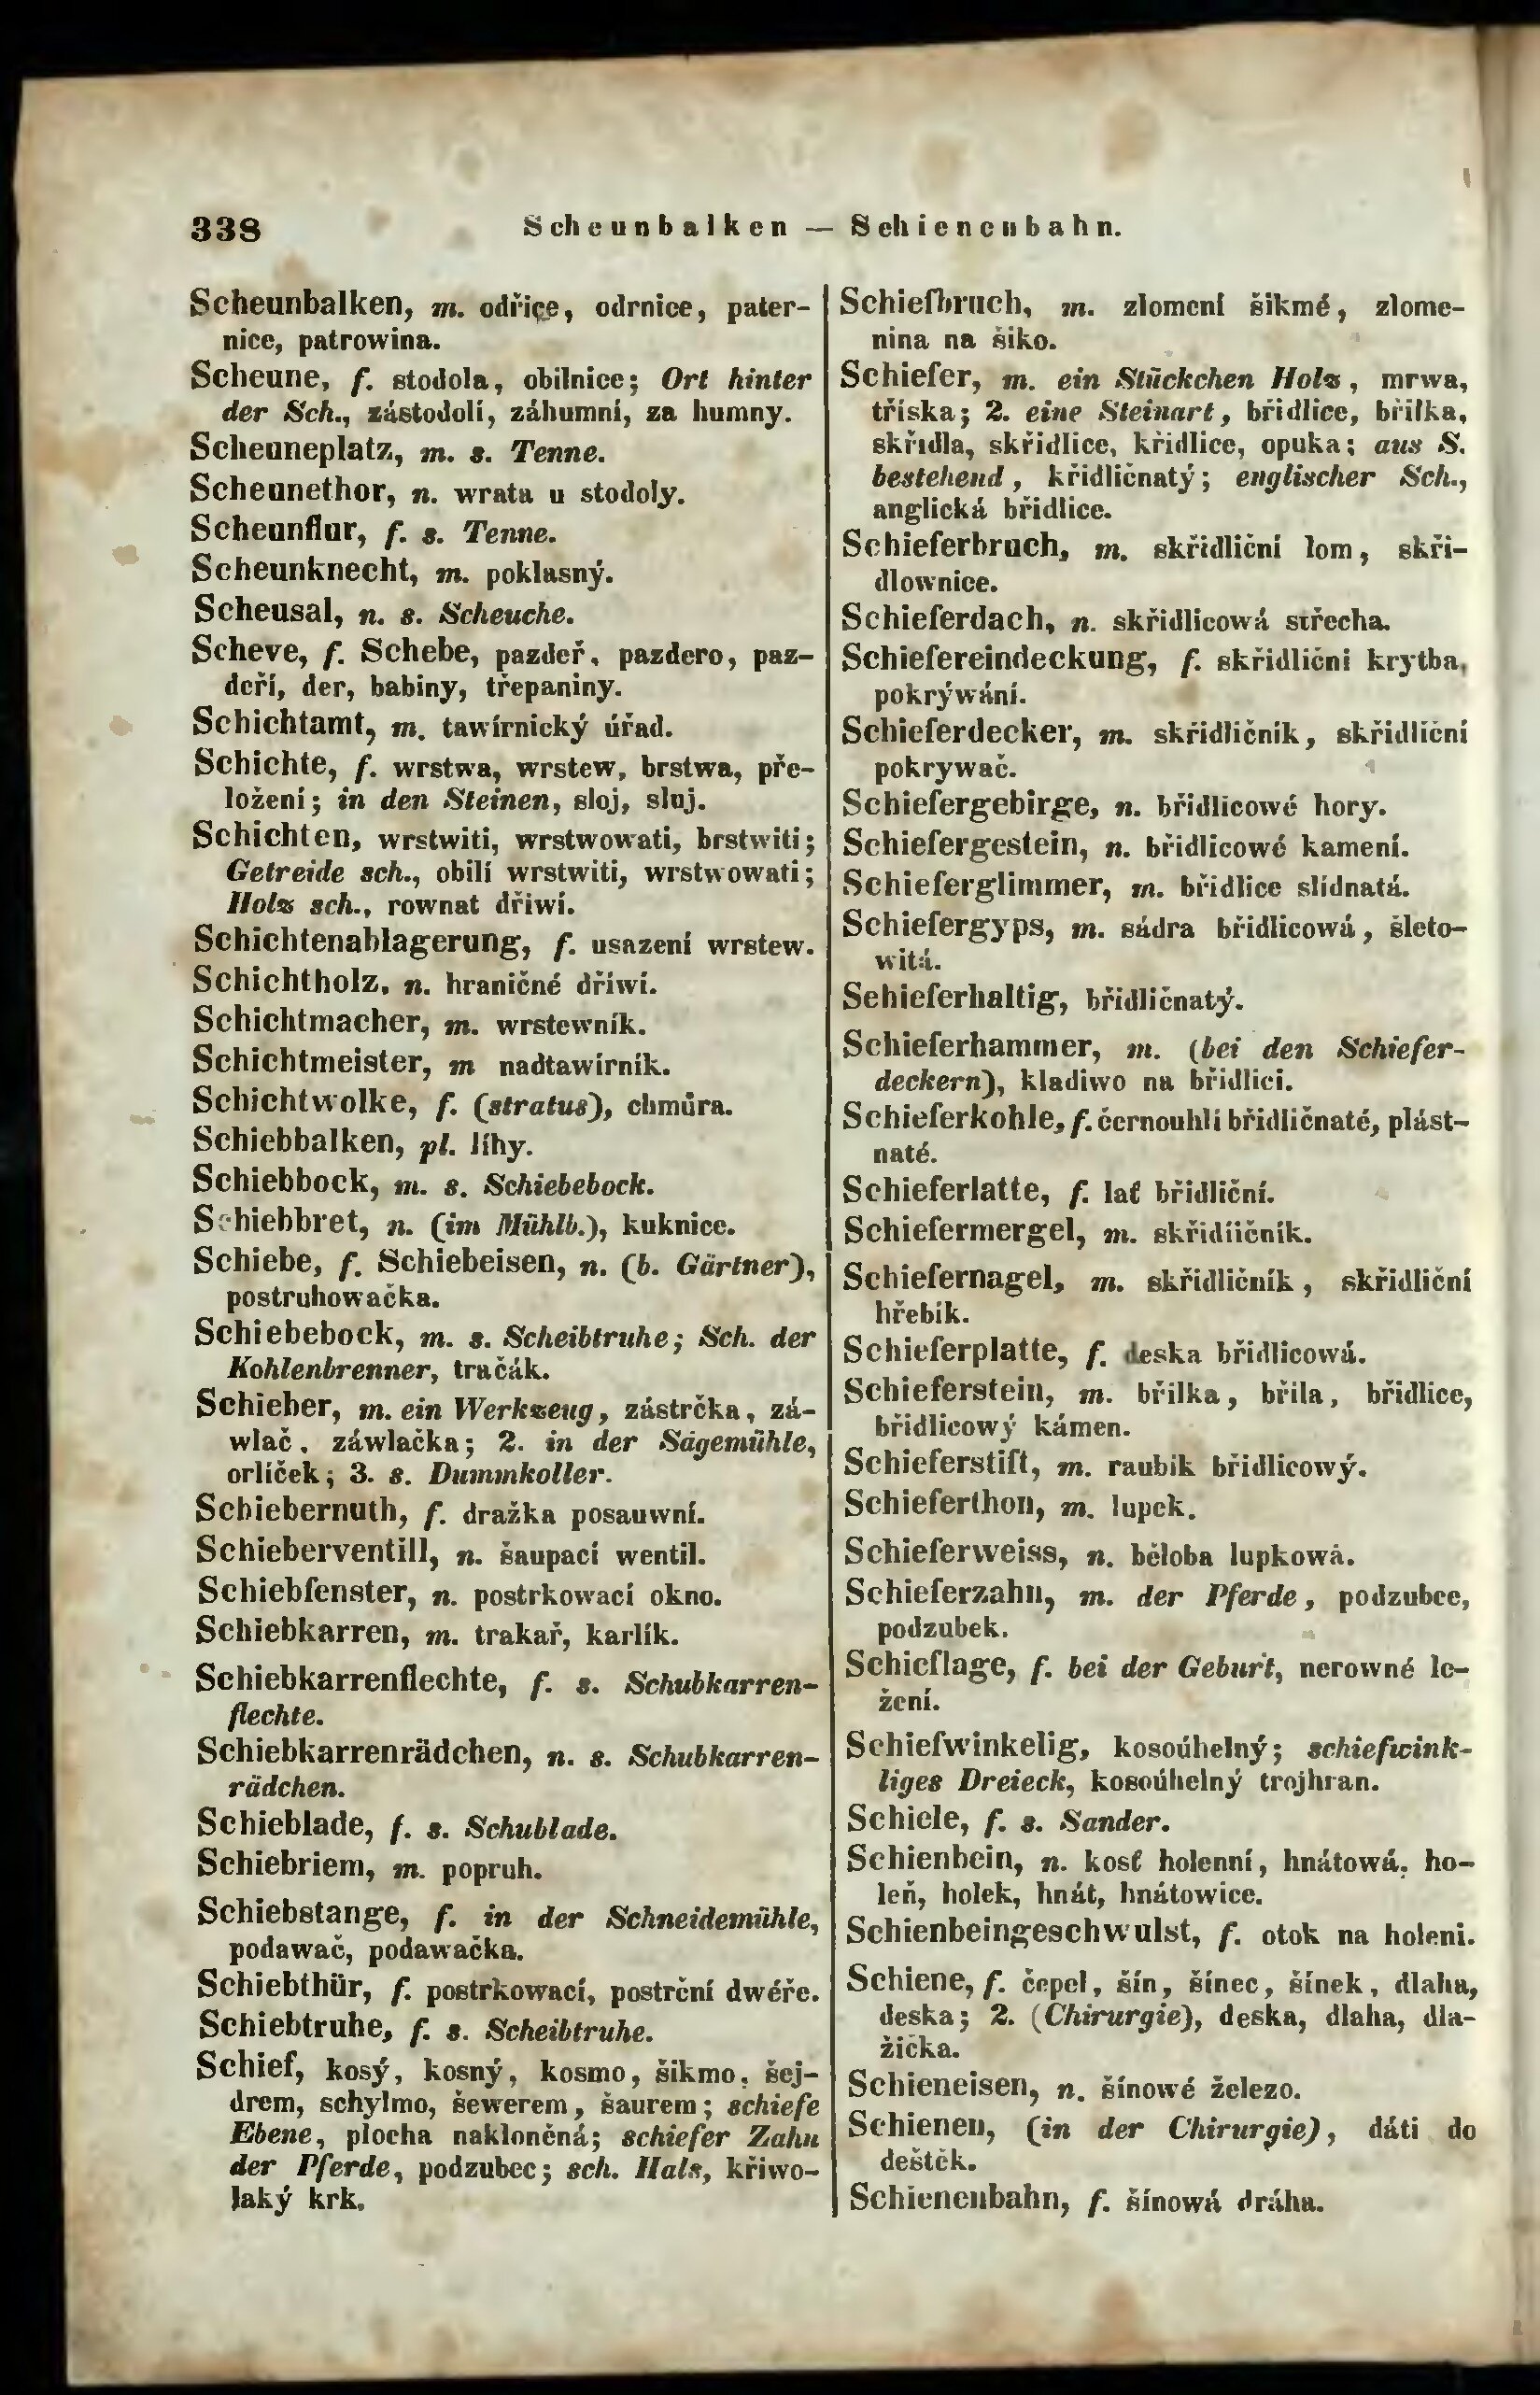 338
Scheunbalken — Schienenbahn.
Scheunbalken, m. odřice, odrnice, pater-
nice, patrowina.
Scheune, f. stodola, obilnice; Ort hinter
der Sch., zástodolí, záhumní, za humny.
Scheuneplatz, m. s. Tenne.
Scheunethor, n. wrata u stodoly.
Scheunflur, f. s. Tenne.
Scheunknecht, m. poklasný.
Scheusal, n. s. Scheuche.
Scheve, f. Schebe, pazdeř, pazdero, paz-
deří, der, babiny, třepaniny.
Schichtamt, m. tawírnický úřad.
Schichte, f. wrstwa, wrstew, brstwa, pře-
ložení; in den Steinen, sloj, sluj.
Schichten, wrstwiti, wrstwowati, brstwiti;
Getreide sch., obilí wrstwiti, wrstwowati;
Holz sch., rownat dříwí.
Schichtenablagerung, f. usazení wrstew.
Schichtholz, n. hraničné dříwí.
Schichtmacher, m. wrstewník.
Schichtmeister, m nadtawírník.
Schichtwolke, f. (stratus), chmůra.
Schiebbalken, pl. líhy.
Schiebbock, m. s. Schiebebock.
Schiebbret, n. (im Mühlb.), kuknice.
Schiebe, f. Schiebeisen, n. (b. Gärtner),
postruhowačka.
Schiebebock, m. s. Scheibtruhe; Sch. der
Kohlenbrenner, tračák.
Schieber, m. ein Werkzeug, zástrčka, zá-
wlač, záwlačka; 2. in der Sägemühle,
orlíček; 3. s. Dummkoller.
Schiebernuth, f. dražka posauwní.
Schieberventill, n. šaupací wentil.
Schiebfenster, n. postrkowací okno.
Schiebkarren, m. trakař, karlík.
Schiebkarrenflechte, f. s. Schubkarren-
flechte.
Schiebkarrenrädchen, n. s. Schubkarren-
rädchen.
Schieblade, f. s. Schublade.
Schiebriem, m. popruh.
Schiebstange, f. in der Schneidemühle,
podawač, podawačka.
Schiebthür, f. postrkowací, postrční dwéře.
Schiebtruhe, f. s. Scheibtruhe.
Schief, kosý, kosný, kosmo, šikmo, šej-
drem, schylmo, šewerem, šaurem; schiefe
Ebene, plocha nakloněná; schiefer Zahn
der Pferde, podzubec; sch. Hals, křiwo-
laký krk.
Schiefbruch, m. zlomení šikmé, zlome-
nina na šiko.
Schiefer, m. ein Stückchen Holz, mrwa,
tříska; 2. eine Steinart, břidlice, břilka,
skřidla, skřidlice, křidlice, opuka; aus S.
bestehend, křidličnatý; englischer Sch.,
anglická břidlice.
Schieferbruch, m. skřidliční lom, skři-
dlownice.
Schieferdach, n. skřidlicowá střecha.
Schiefereindeckung, f. skřidliční krytba,
pokrýwání.
Schieferdecker, m. skřidličník, skřidliční
pokrywač.
Schiefergebirge, n. břidlicowé hory.
Schiefergestein, n. břidlicowé kamení.
Schieferglimmer, m. břidlice slídnatá.
Schiefergyps, m. sádra břidlicowá, šleto-
witá.
Schieferhaltig, břidličnatý.
Schieferhammer, m. (bei den Schiefer-
deckern), kladiwo na břidlici.
Schieferkohle, f. černouhlí břidličnaté, plást-
naté.
Schieferlatte, f. lať břidliční.
Schiefermergel, m. skřidličník.
Schiefernagel, m. skřidličník, skřidliční
hřebík.
Schieferplatte, f. deska břidlicowá.
Schieferstein, m. břilka, břila, břidlice,
břidlicowý kámen.
Schieferstift, m. raubík břidlicowý.
Schieferthon, m. lupek.
Schieferweiss, n. běloba lupkowá.
Schieferzahn, m. der Pferde, podzubce,
podzubek.
Schieflage, f. bei der Geburt, nerowné le-
žení.
Schiefwinkelig, kosoúhelný; schiefwink-
liges Dreieck, kosoúhelný trojhran.
Schiele, f. s. Sander.
Schienbein, n. kosť holenní, hnátowá, ho-
leň, holek, hnát, hnátowice.
Schienbeingeschwulst, f. otok na holeni.
Schiene, f. čepel, šín, šínec, šínek, dlaha,
deska; 2. (Chirurgie), deska, dlaha, dla-
žička.
Schieneisen, n. šínowé železo.
Schienen, (in der Chirurgie), dáti do
deštěk.
Schienenbahn, f. šínowá dráha.